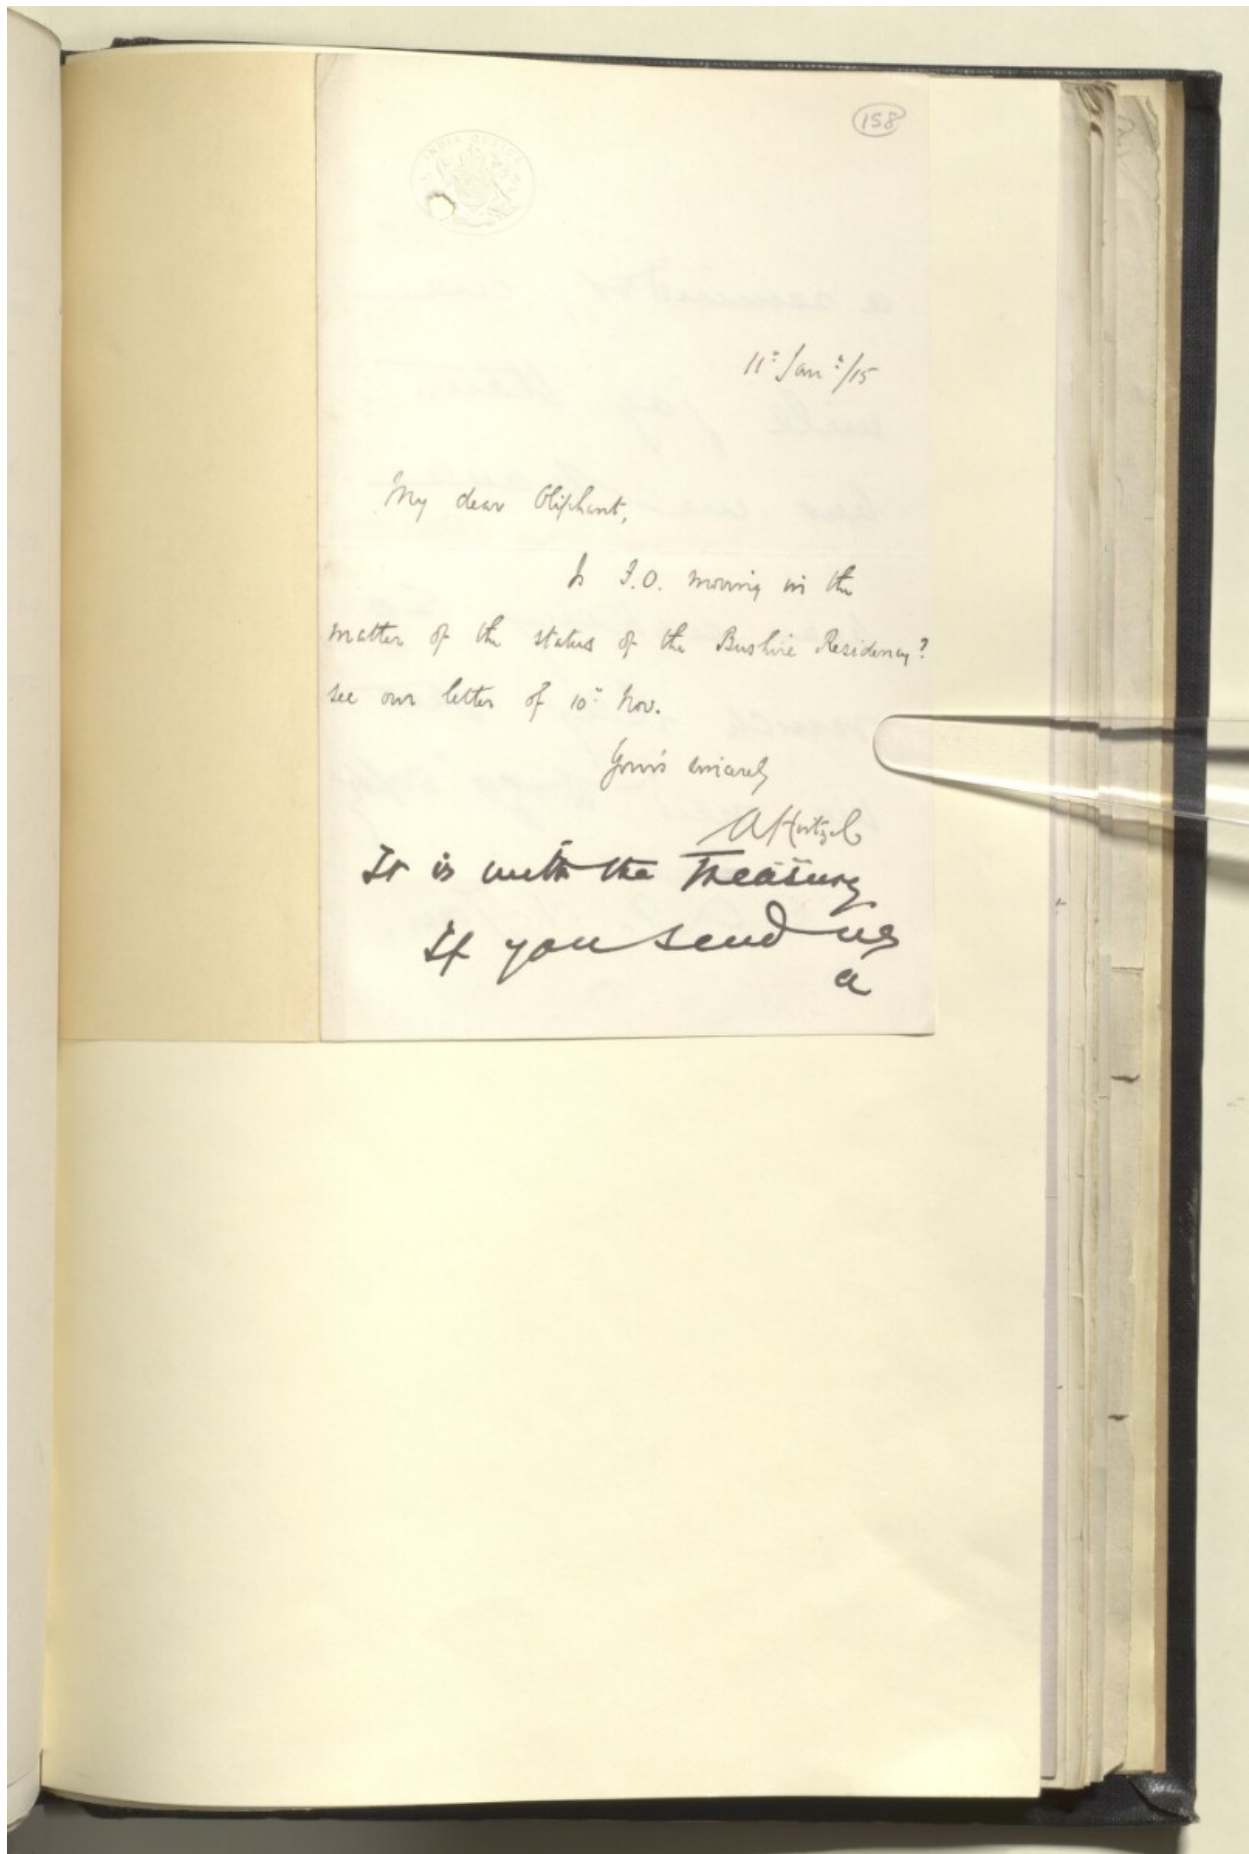 158
INDIA OFFICE
11th Jany/15
My dear Oliphant,
Is F.O. moving in the
matter of the status of the Bushire Residency?
see our letter of 10th Nov.
Yours sincerely
A Hirtzel
It is with the Treasury
If you send us
a